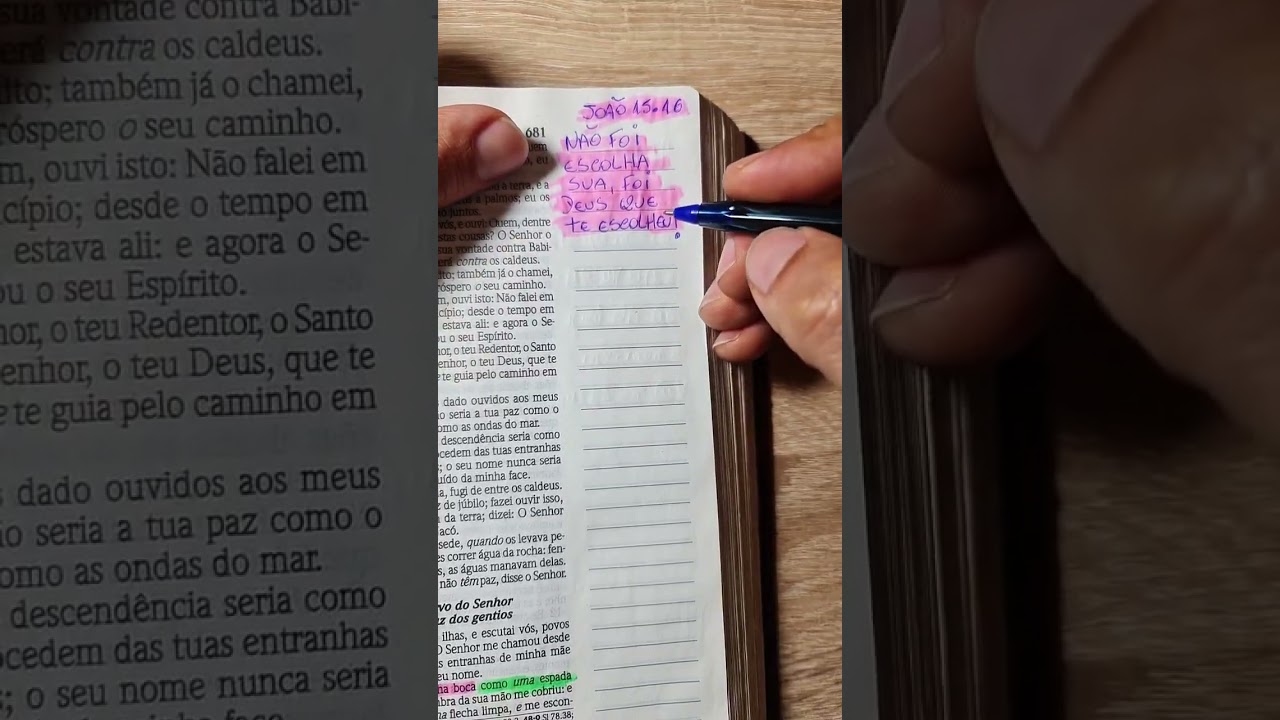 sua vontade contra Babi-
contra os caldeus.
também já o chamei,
róspero o seu caminho.
m, ouvi isto: Não falei em
cípio; desde o tempo em
estava ali: e agora o Se-
ou o seu Espírito.
hor, o teu Redentor, o Santo
enhor, o teu Deus, que te
e te guia pelo caminho em
dado ouvidos aos meus
ão seria a tua paz como o
omo as ondas do mar.
descendência seria como
ocedem das tuas entranhas
s; o seu nome nunca seria
681
a terra, e a
a palmos; eu os
juntos.
vós, e ouvi: Quem, dentre
stas cousas? O Senhor o
sua vontade contra Babi-
erá contra os caldeus.
ito; também já o chamei,
róspero o seu caminho.
m, ouvi isto: Não falei em
cípio; desde o tempo em
estava ali: e agora o Se-
u o seu Espírito.
or, o teu Redentor, o Santo
enhor, o teu Deus, que te
e te guia pelo caminho em
dado ouvidos aos meus
ão seria a tua paz como o
omo as ondas do mar.
descendência seria como
ocedem das tuas entranhas
s; o seu nome nunca seria
uído da minha face.
a, fugi de entre os caldeus.
z de júbilo; fazei ouvir isso,
da terra; dizei: O Senhor
acó.
sede, quando os levava pe-
es correr água da rocha: fen-
s, as águas manavam delas.
não têm paz, disse o Senhor.
vo do Senhor
uz dos gentios
ilhas, e escutai vós, povos
O Senhor me chamou desde
s entranhas de minha mãe
eu nome.
na boca como uma espada
mbra da sua mão me cobriu: e
na flecha limpa, e me escon-
Sl 78.38;
JOÃO 15.16
NÃO FOI
ESCOLHA
SUA, FOI
DEUS QUE
TE ESCOLHEU!